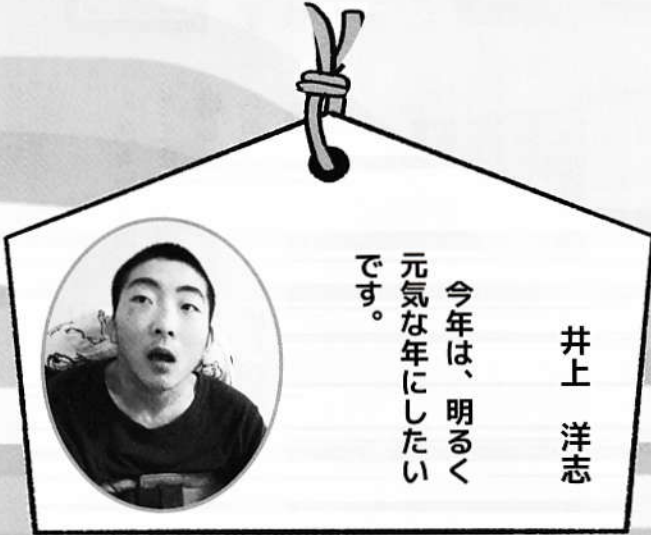 井上 洋志
今年は、明るく
元気な年にしたい
です。